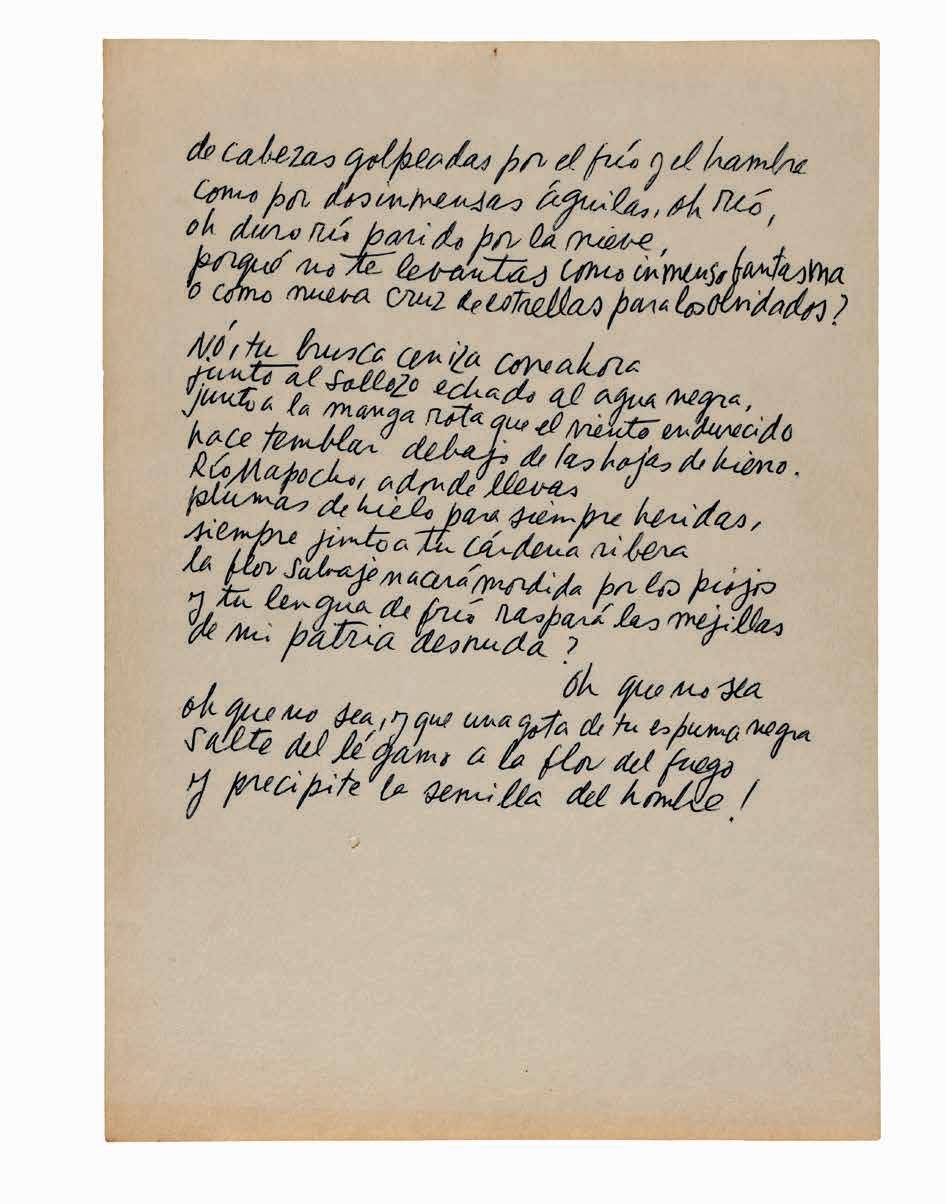 de cabezas golpeadas por el frío y el hambre
como por dos inmensas águilas, oh río,
oh duro río parido por la nieve,
porqué no te levantas como inmenso fantasma
o como nueva cruz de estrellas para los olvidados?
Nó, tu brusca ceniza corre ahora
junto al sollozo echado al agua negra,
junto a la manga rota que el viento endurecido
hace temblar debajo de las hojas de hierro.
Río Mapocho, adonde llevas
plumas de hielo para siempre heridas,
siempre junto a tu cárdena ribera
la flor salvaje nacerá mordida por los piojos
y tu lengua de frío raspará las mejillas
de mi patria desnuda?
Oh que no sea
oh que no sea, y que una gota de tu espuma negra
salte del légamo a la flor del fuego
y precipite la semilla del hombre!